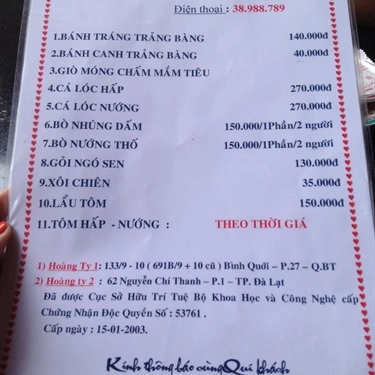 Điện thoại : 38.988.789
1.BÁNH TRÁNG TRẢNG BÀNG 140.000đ
2.BÁNH CANH TRẢNG BÀNG 40.000đ
3.GIÒ MÓNG CHẤM MẮM TIÊU
4.CÁ LÓC HẤP 270.000đ
5.CÁ LÓC NƯỚNG 270.000đ
6.BÒ NHÚNG DẤM 150.000/1Phần/2 người
7.BÒ NƯỚNG THỐ 150.000/1Phần/2 người
8.GỎI NGÓ SEN 130.000đ
9.XÔI CHIÊN 35.000đ
10.LẨU TÔM 150.000đ
11.TÔM HẤP - NƯỚNG : THEO THỜI GIÁ
1) Hoàng Ty 1: 133/9 - 10 ( 691B/9 + 10 cũ ) Bình Quới – P.27 – Q.BT
2) Hoàng ty 2 : 62 Nguyễn Chí Thanh – P.1 – TP. Đà Lạt
Đã được Cục Sở Hữu Trí Tuệ Bộ Khoa Học và Công Nghệ cấp
Chứng Nhận Độc Quyền Số : 53761 .
Cấp ngày : 15-01-2003.
Kính thông báo cùng Quí khách